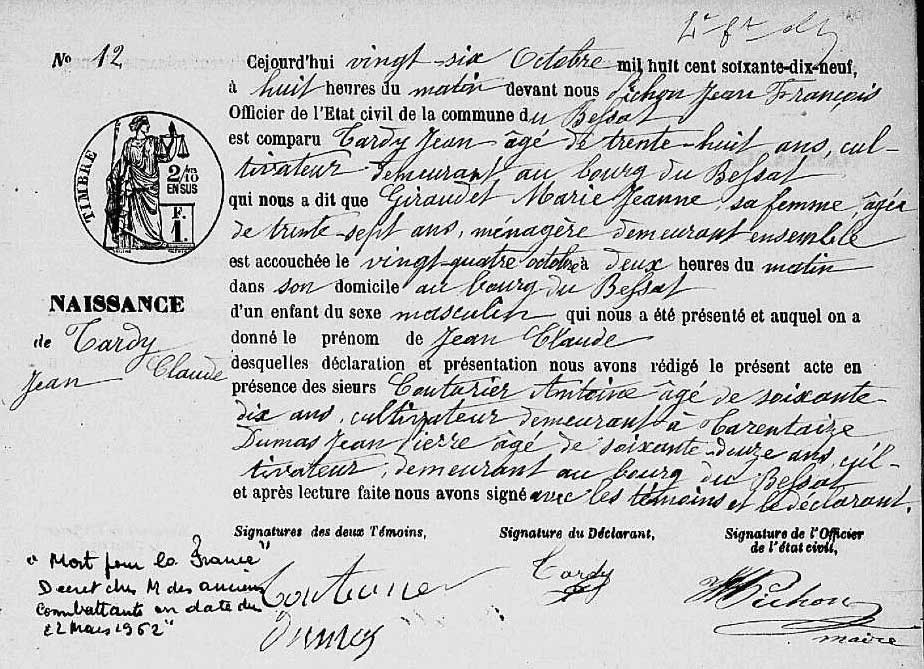 No 12
Cejourd'hui vingt-six Octobre mil huit cent soixante-dix-neuf,
à huit heures du matin devant nous Pichon Jean François
Officier de l'Etat civil de la commune du Bessat
est comparu Tardy Jean âgé de trente-huit ans, cul-
tivateur demeurant au bourg du Bessat
qui nous a dit que Giraudet Marie Jeanne, sa femme, âgée
de trente-sept ans, ménagère demeurant ensemble
est accouchée le vingt-quatre octobre à deux heures du matin
dans son domicile au bourg du Bessat
d'un enfant du sexe masculin qui nous a été présenté et auquel on a
donné le prénom de Jean Claude
desquelles déclaration et présentation nous avons rédigé le présent acte en
présence des sieurs Couturier Antoine âgé de soixante-
dix ans, cultivateur demeurant à Tarentaize
Dumas Jean Pierre âgé de soixante-douze ans, cul-
tivateur, demeurant au bourg du Bessat
et après lecture faite nous avons signé avec les témoins et le déclarant.
TIMBRE
2/10
EN SUS
F.
1.
NAISSANCE
de Tardy
Jean Claude
Signatures des deux Témoins,
Signature du Déclarant,
Signature de l'Officier
de l'état civil,
"Mort pour la France"
Decret du M des anciens
Combattants en date du
22 Mars 1962"
Couturier
Dumas
Tardy
Pichon
maire